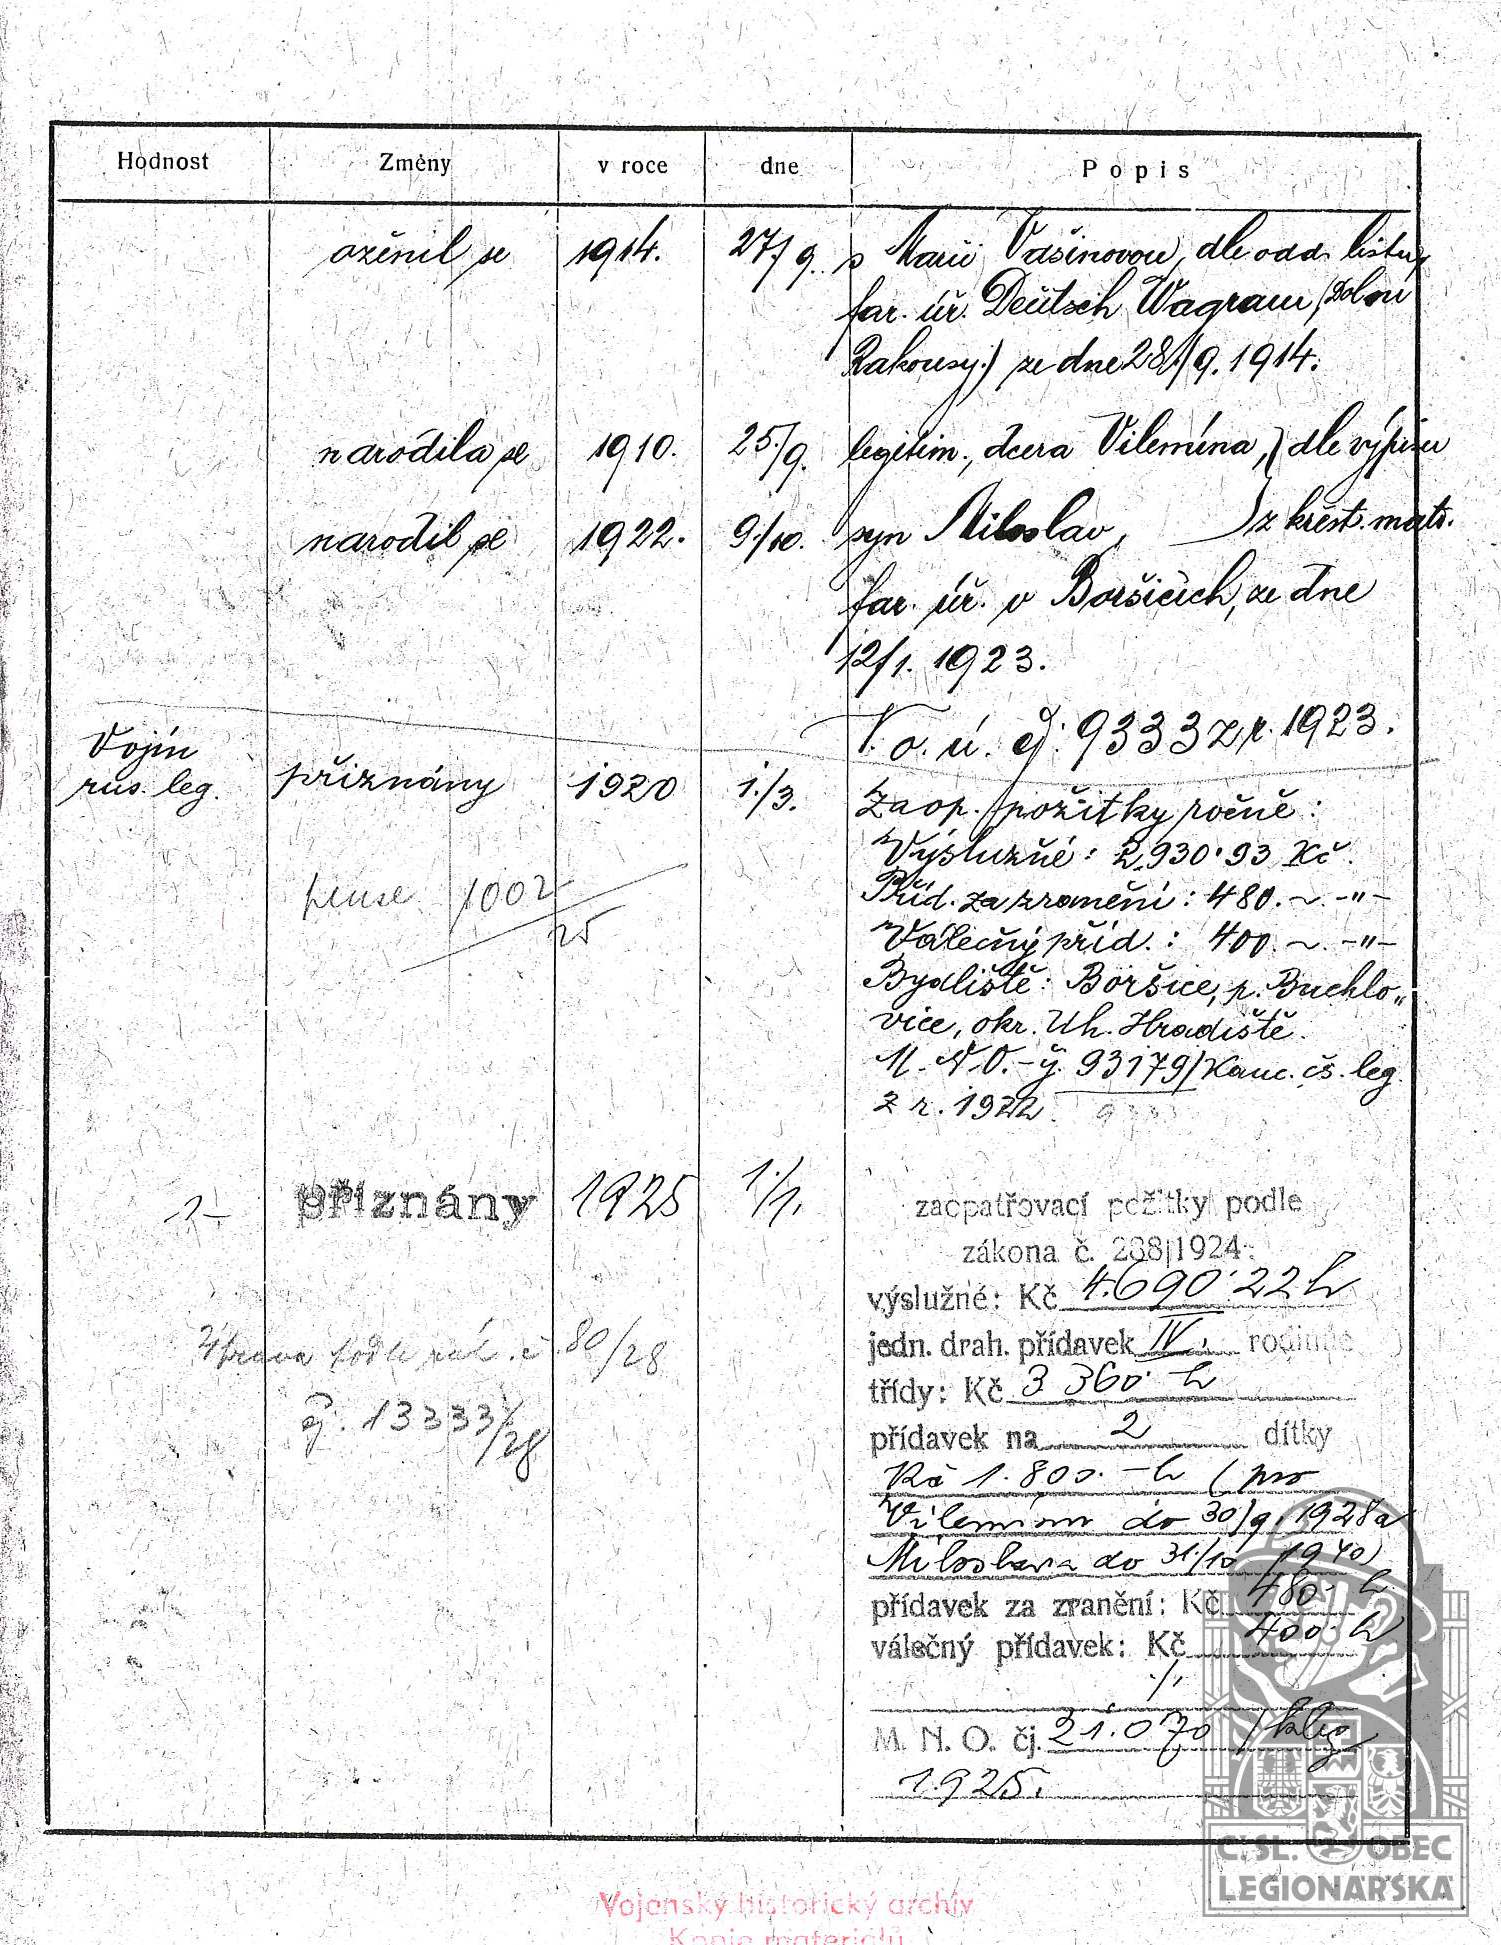 Hodnost Změny v roce dne Popis
oženil se 1914. 27./9. s Marií Vašinovou, dle odd. listu
far. úř. Deutsch Wagram, (Dolní
Rakousy.) ze dne 28./9. 1914.
narodila se 1910. 25./9. legitim. dcera Vilemína, } dle výpisu
narodil se 1922. 9./10. syn Miloslav, } z křest. matr.
far. úř. v Boršicích, ze dne
12/1. 1923.
V. o. ú. čj. 9333 z r. 1923.
Vojín
rus. leg. přiznány 1920 1./3. Zaop. požitky ročně:
Výslužné: 2.930.93 Kč.
Příd. za zranění: 480.~ -"-
pense 1002/25
Válečný příd.: 400.~ -"-
Bydliště: Boršice, p. Buchlo„
vice, okr. Uh. Hradiště.
M.N.O.-č. 93179/Kanc. čs. leg.
z r. 1922.
-"- přiznány 1925 1./1. zaopatřovací požitky podle
zákona č. 288/1924.
výslužné: Kč 4.690.22 h
jedn. drah. přídavek IV. rodinné
Úprava podle č. 80/28
třídy: Kč 3 360.- h
čj. 13333/28
přídavek na 2 dítky
Kč 1.800.- h (pro
Vilemínu do 30/9. 1928 a
Miloslava do 31./10 1940)
přídavek za zranění: Kč 480.- h
válečný přídavek: Kč 400.- h
./.
M. N. O. čj. 21.070 /kleg
1925.
Č. SL. OBEC
LEGIONÁŘSKÁ
Vojenský historický archiv
Kopie materiálů